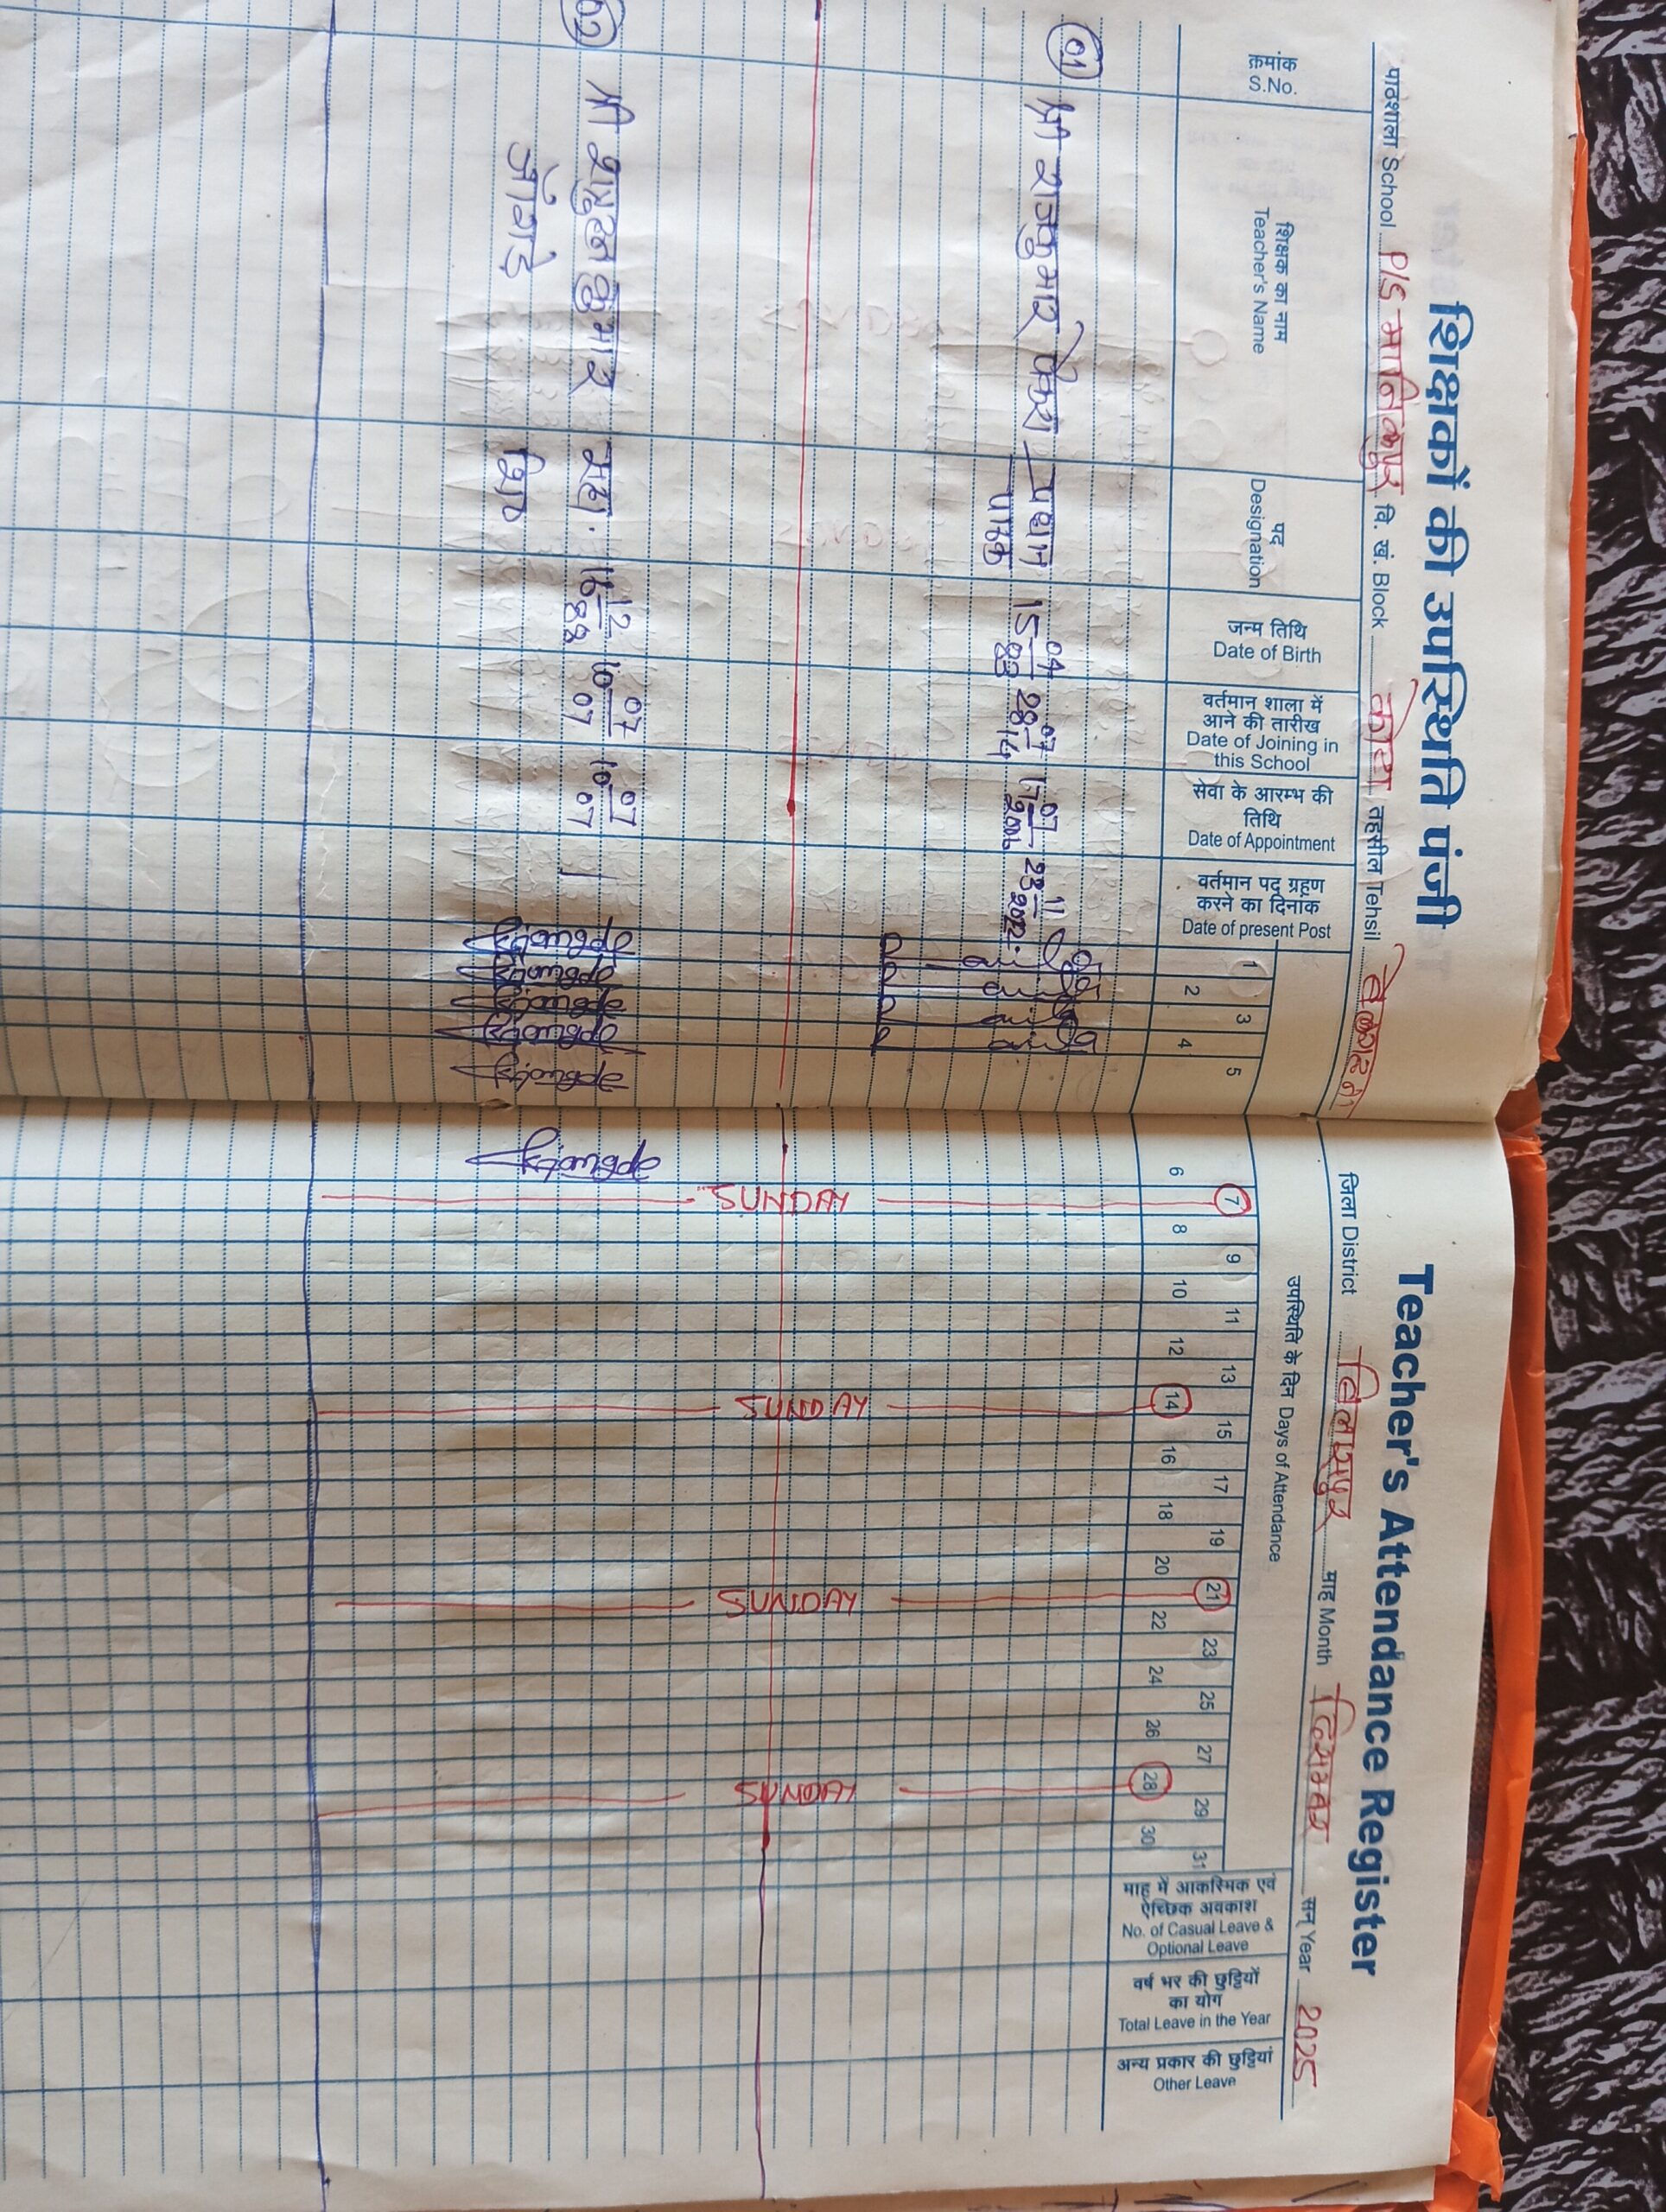 शिक्षकों की उपस्थिति पंजी
Teacher's Attendance Register
पाठशाला School P/S मानिकपुर वि. खं. Block कोटा तहसील Tehsil बेलगहना जिला District बिलासपुर माह Month दिसम्बर सन् Year 2025
क्रमांक
S.No.
शिक्षक का नाम
Teacher's Name
पद
Designation
जन्म तिथि
Date of Birth
वर्तमान शाला में
आने की तारीख
Date of Joining in
this School
सेवा के आरम्भ की
तिथि
Date of Appointment
वर्तमान पद ग्रहण
करने का दिनांक
Date of present Post
उपस्थिति के दिन Days of Attendance
1 2 3 4 5 6 7 8 9 10 11 12 13 14 15 16 17 18 19 20 21 22 23 24 25 26 27 28 29 30 31
माह में आकस्मिक एवं
ऐच्छिक अवकाश
No. of Casual Leave &
Optional Leave
वर्ष भर की छुट्टियों
का योग
Total Leave in the Year
अन्य प्रकार की छुट्टियां
Other Leave
01 श्री राजकुमार प्रधान 15 04 83 28 07 14 17 07 2006 23 11 2022
पाठक
SUNDAY SUNDAY SUNDAY SUNDAY
02 श्री शत्रुहन कुमार सहा. 16 12 88 10 07 07 10 07 07
जोगड़े शि०